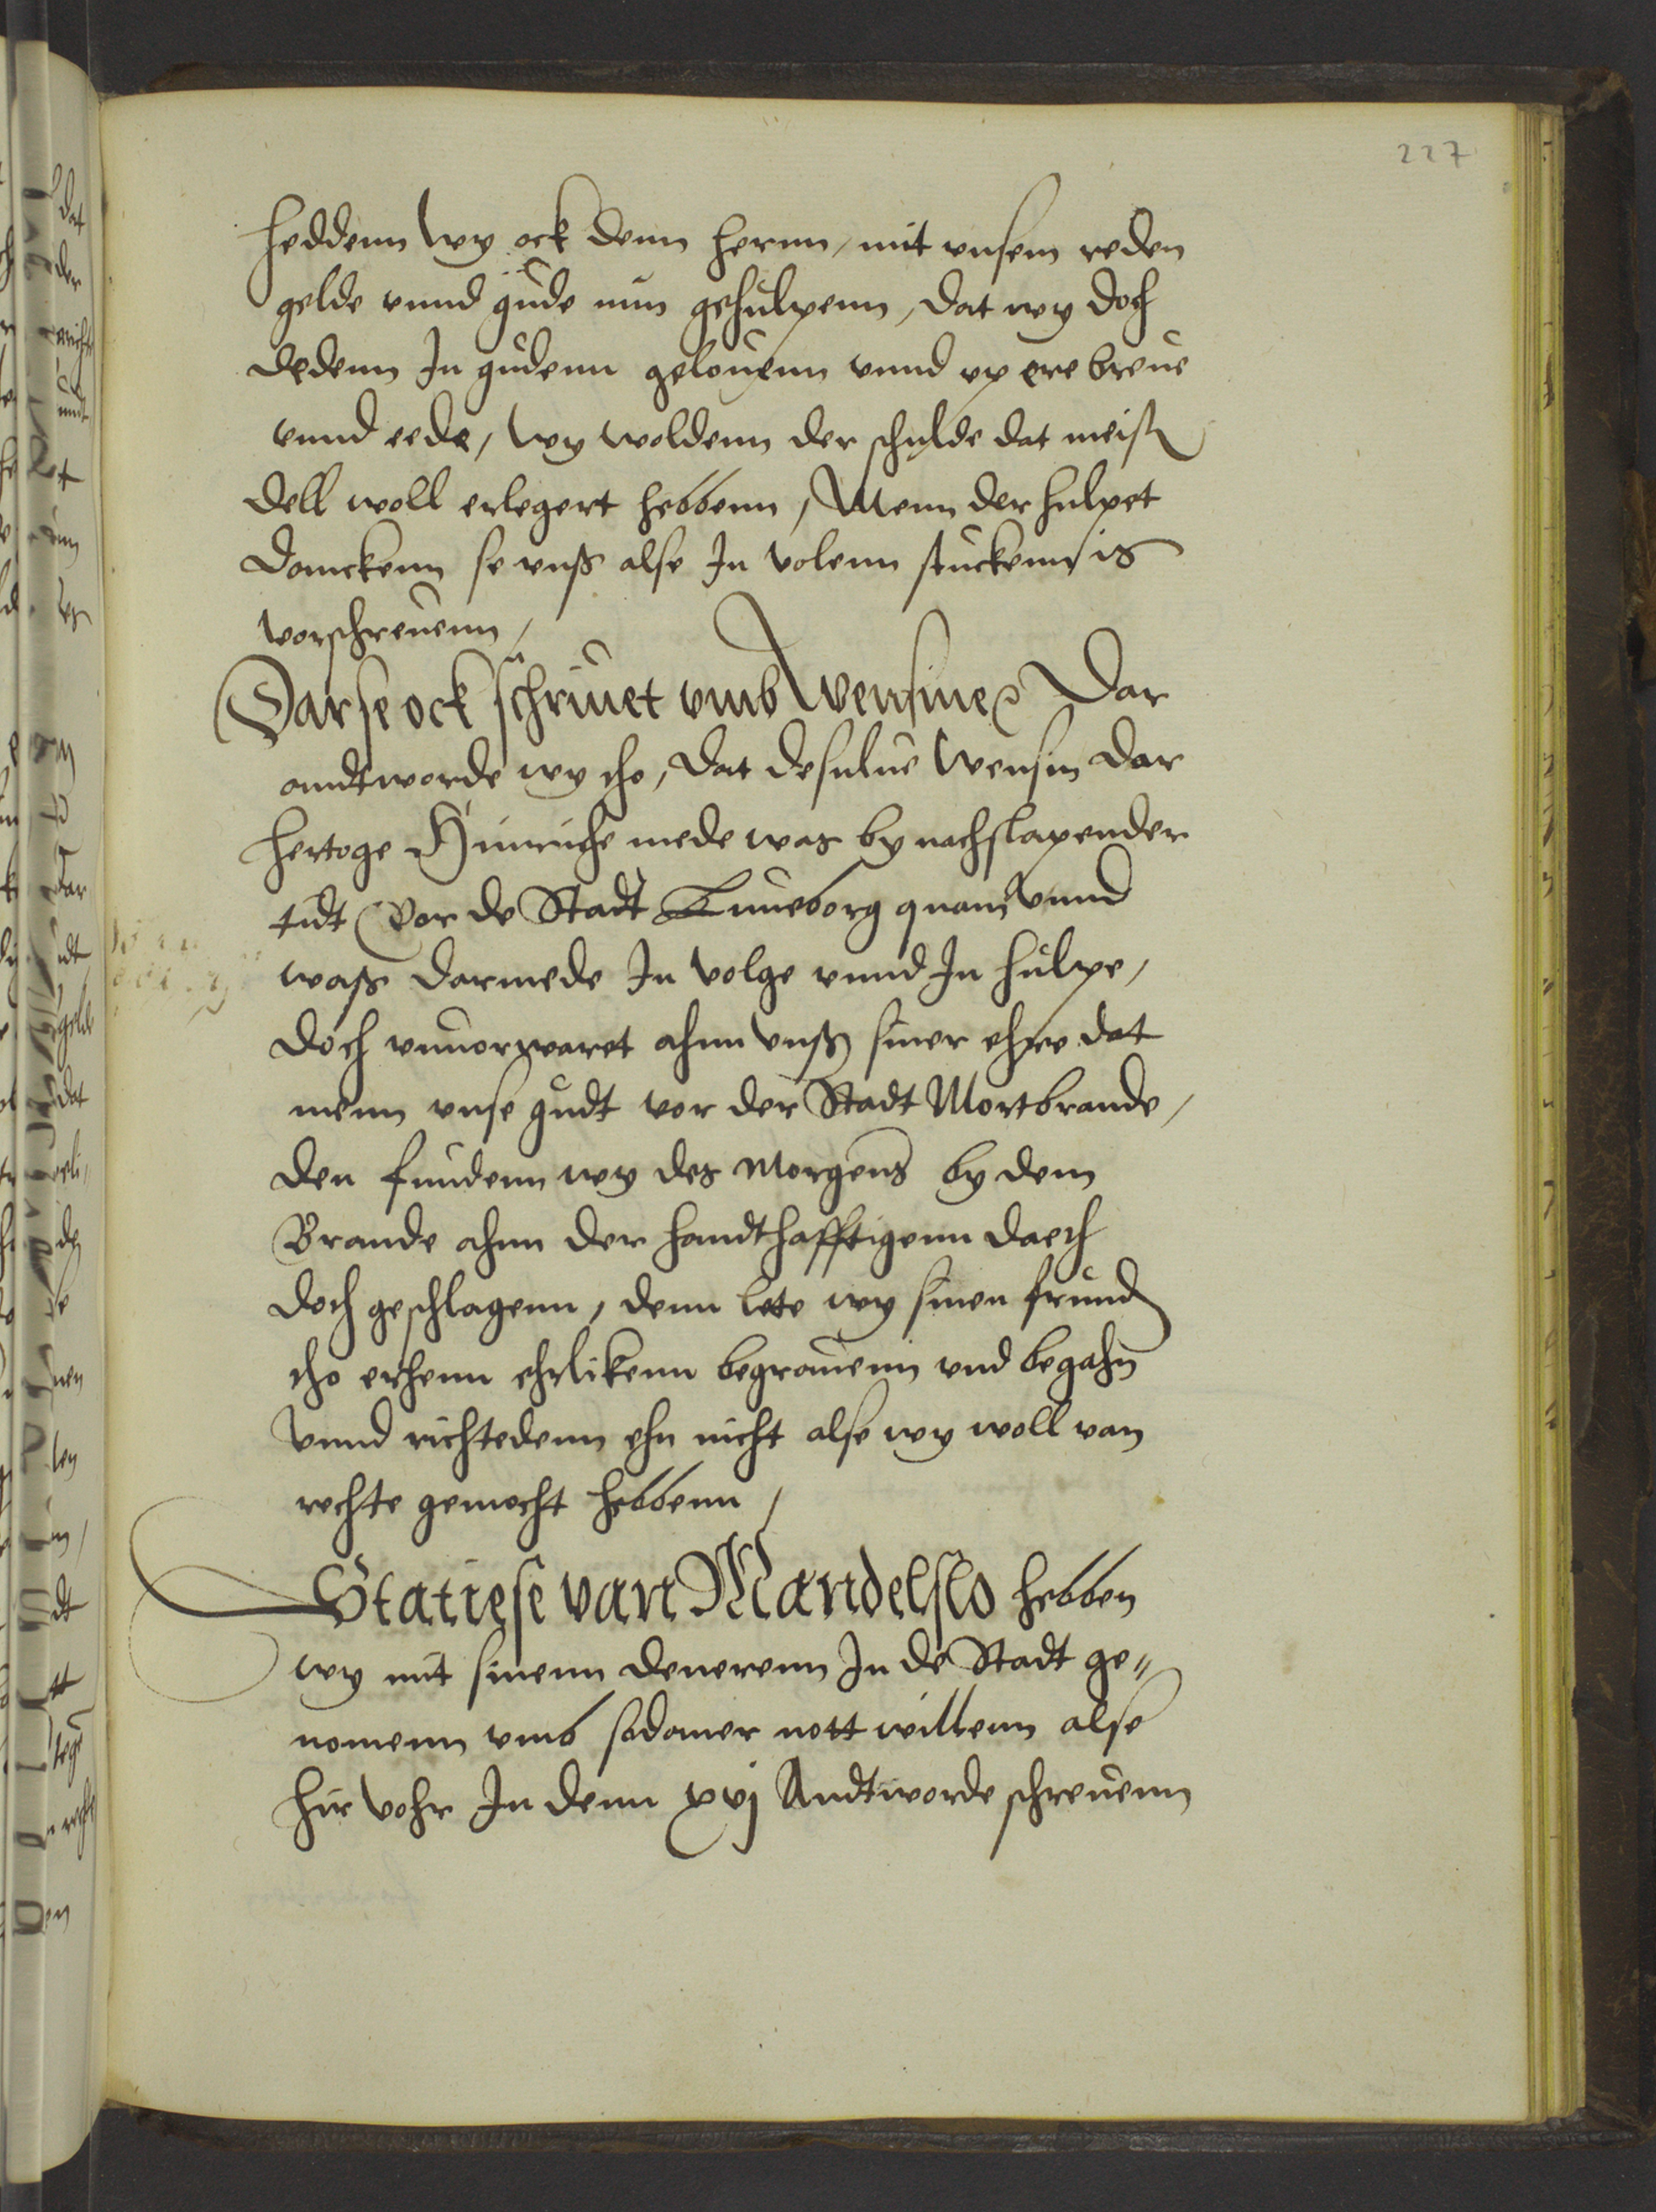 227
heddenn wy ock denn hernn, mit vnsem reden
gelde vnnd gude nun gehulpenn, dat wy doch
dedenn In gudenn gelouenn vnnd vp ere breue
vnnd eede, wy woldenn der schulde dat meiste
dell woll erlegert hebbenn, Wenn der hulpet
danckenn se vnß alse In velenn stuckenn is
vorschreuenn,
Dar se ock schriuet vmb Wensine Dar
andtworde wy tho, dat desulue Wensin dar
hertoge Hinriche mede was by nachslapender
tidt Vor de Stadt Luneborg quam vnnd
waß darmede In volge vnnd In hulpe,
doch vnuorwaret ahnn vnß siner ehre dat
menn vnse gudt vor der Stadt Mortbrande,
den fundenn wy des Morgens by dem
Brande ahnn der handthafftigenn daeth
doth geschlagenn, denn lete wy sinen frund
tho erhenn ehrlikenn begrauenn vnd begahn
Vnnd richtedenn ehn nicht alse wy woll van
rechte gemocht hebbenn,
Statiese van Mandelslo hebben
wy mit sinenn denerenn In de Stadt ge„
nomenn vmb sodaner nott willenn alse
hir vohr In denn xvj Andtworde schreuenn